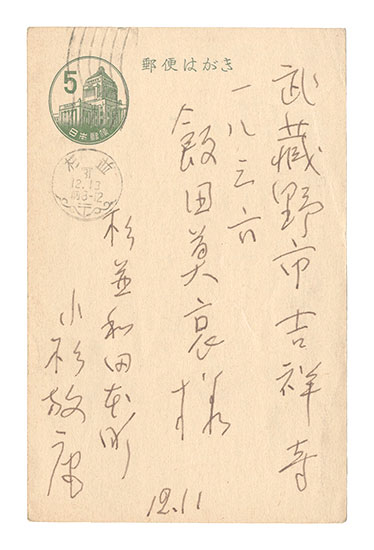 郵便はがき
5
日本郵便
杉並
12.13
武蔵野市吉祥寺
一八三六
飯田莫哀様
杉並和田本町
小杉放庵
12.11